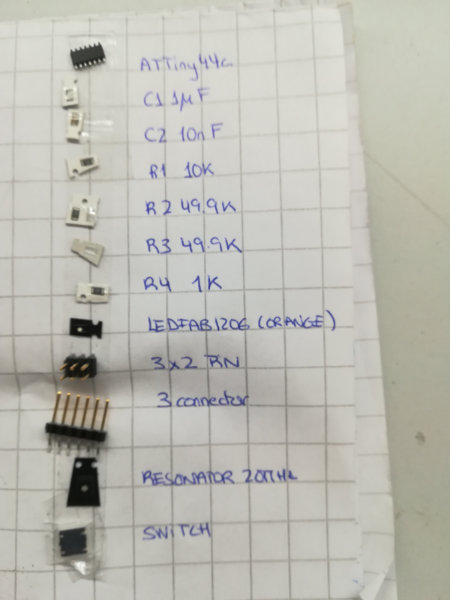 ATTiny44a
C1 1µF
C2 10nF
R1 10K
R2 49.9K
R3 49.9K
R4 1K
LEDFAB1206 (ORANGE)
3x2 PIN
3 connector
RESONATOR 20MHz
SWITCH